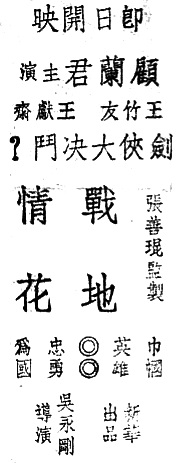 即日開映
顧蘭君主演
王竹友 王獻齋
劍俠大决鬥?
張善琨監製
戰地
情花
巾幗英雄◎◎忠勇爲國
新華出品
吳永剛導演